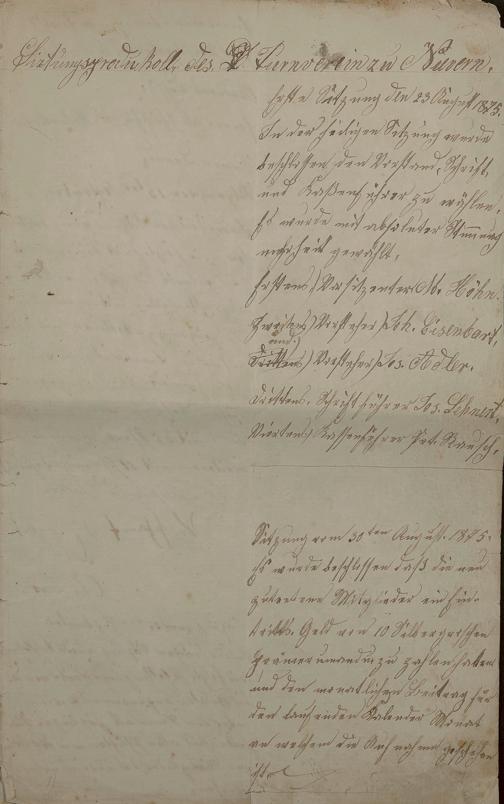 Sitzungsprotokoll des Turnverein zu Nüvern.
Erste Sitzung den 23 August 1875.
In der heutigen Sitzung wurde
beschlossen den Vorstand, Schrift,
und Kaßenführer zu wählen.
Es wurde mit absoluter Stimmen
mehrheit gewählt,
Erstens) Vorsitzenter M. Höhn
Zweitens) Vorsteher) Joh. Eisenbart,
und)
Drittens) Vorsteher) Jos. Adler.
Drittens. Schriftführer Jos. Lehnert,
Viertens) Kassenführer Pet. Rausch,
Sitzung vom 30ten August. 1875.
Es wurde beschlossen daß die neu
zutretene Mitglieder ein Ein-
tritts. Geld von 10 Silbergroschen
zu zahlen haben
und den monatlichen Beitrag für
den laufenden Kalender Monat
an welchem die Aufnahme geschehen
ist.